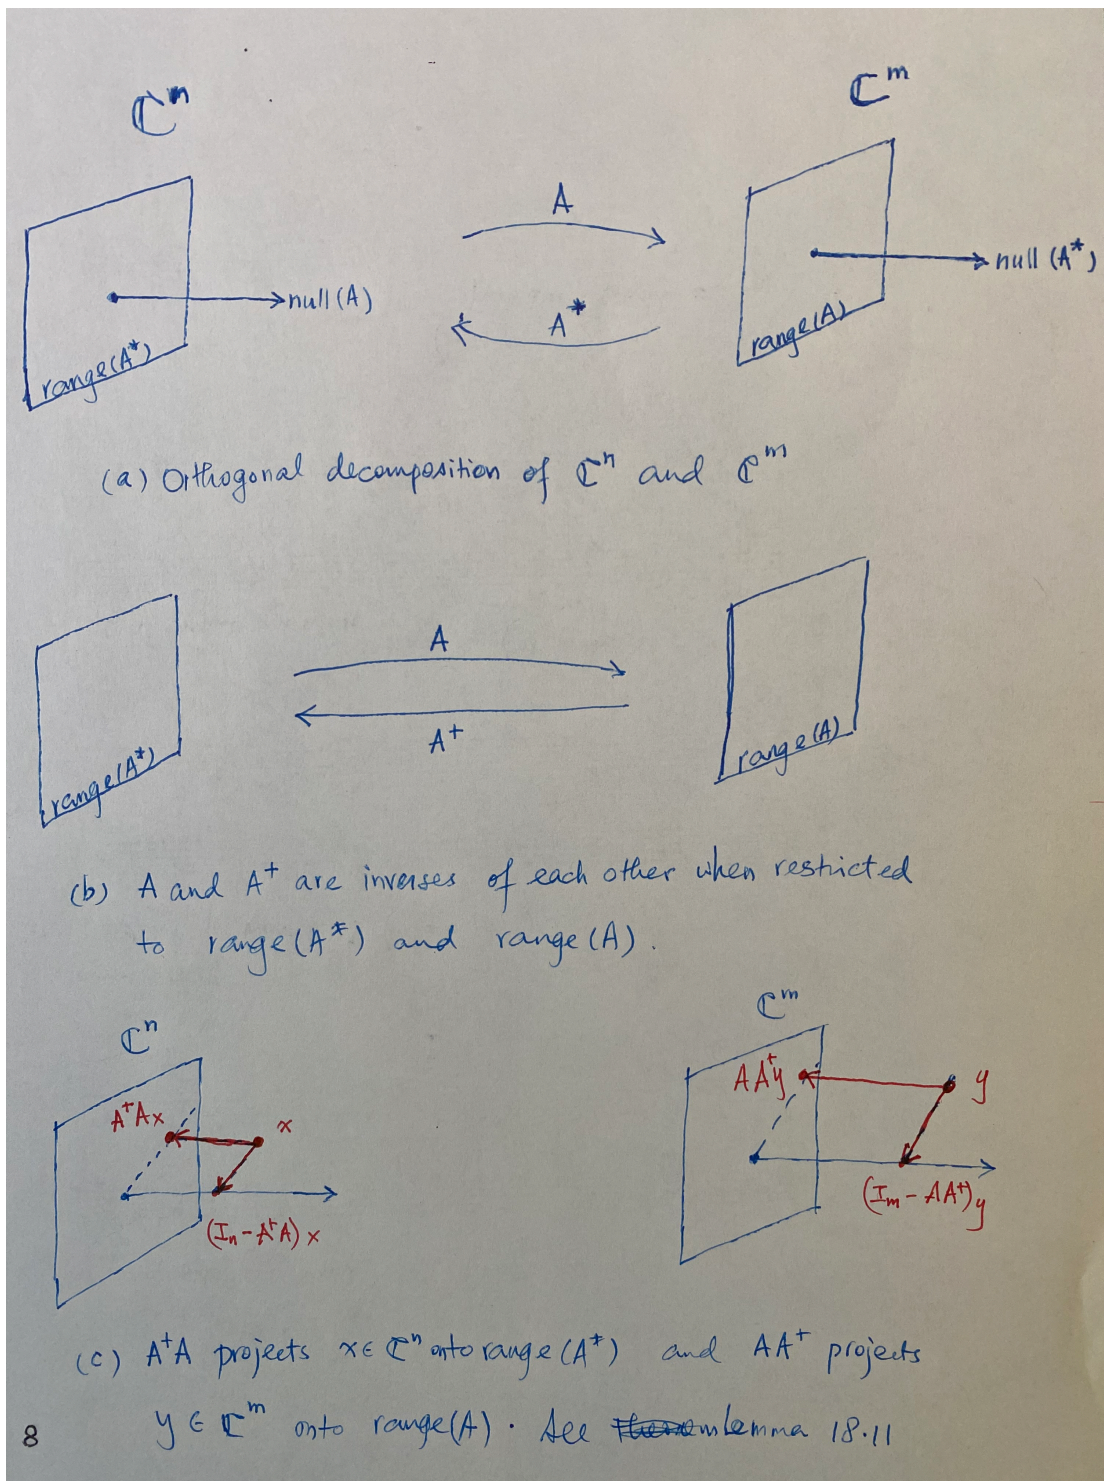 ℂᵐ
ℂᵐ
A
null(A)
null(A*)
A*
range(A*)
range(A)
(a) Orthogonal decomposition of ℂⁿ and ℂᵐ
A
A⁺
range(A*)
range(A)
(b) A and A⁺ are inverses of each other when restricted
to range(A*) and range(A).
ℂⁿ
ℂᵐ
A⁺Ax
x
(Iₙ-A⁺A)x
AA⁺y
y
(Iₘ-AA⁺)y
(c) A⁺A projects x∈ℂⁿ onto range(A*) and AA⁺ projects
y∈ℂᵐ onto range(A). See Lemma 18.11
8